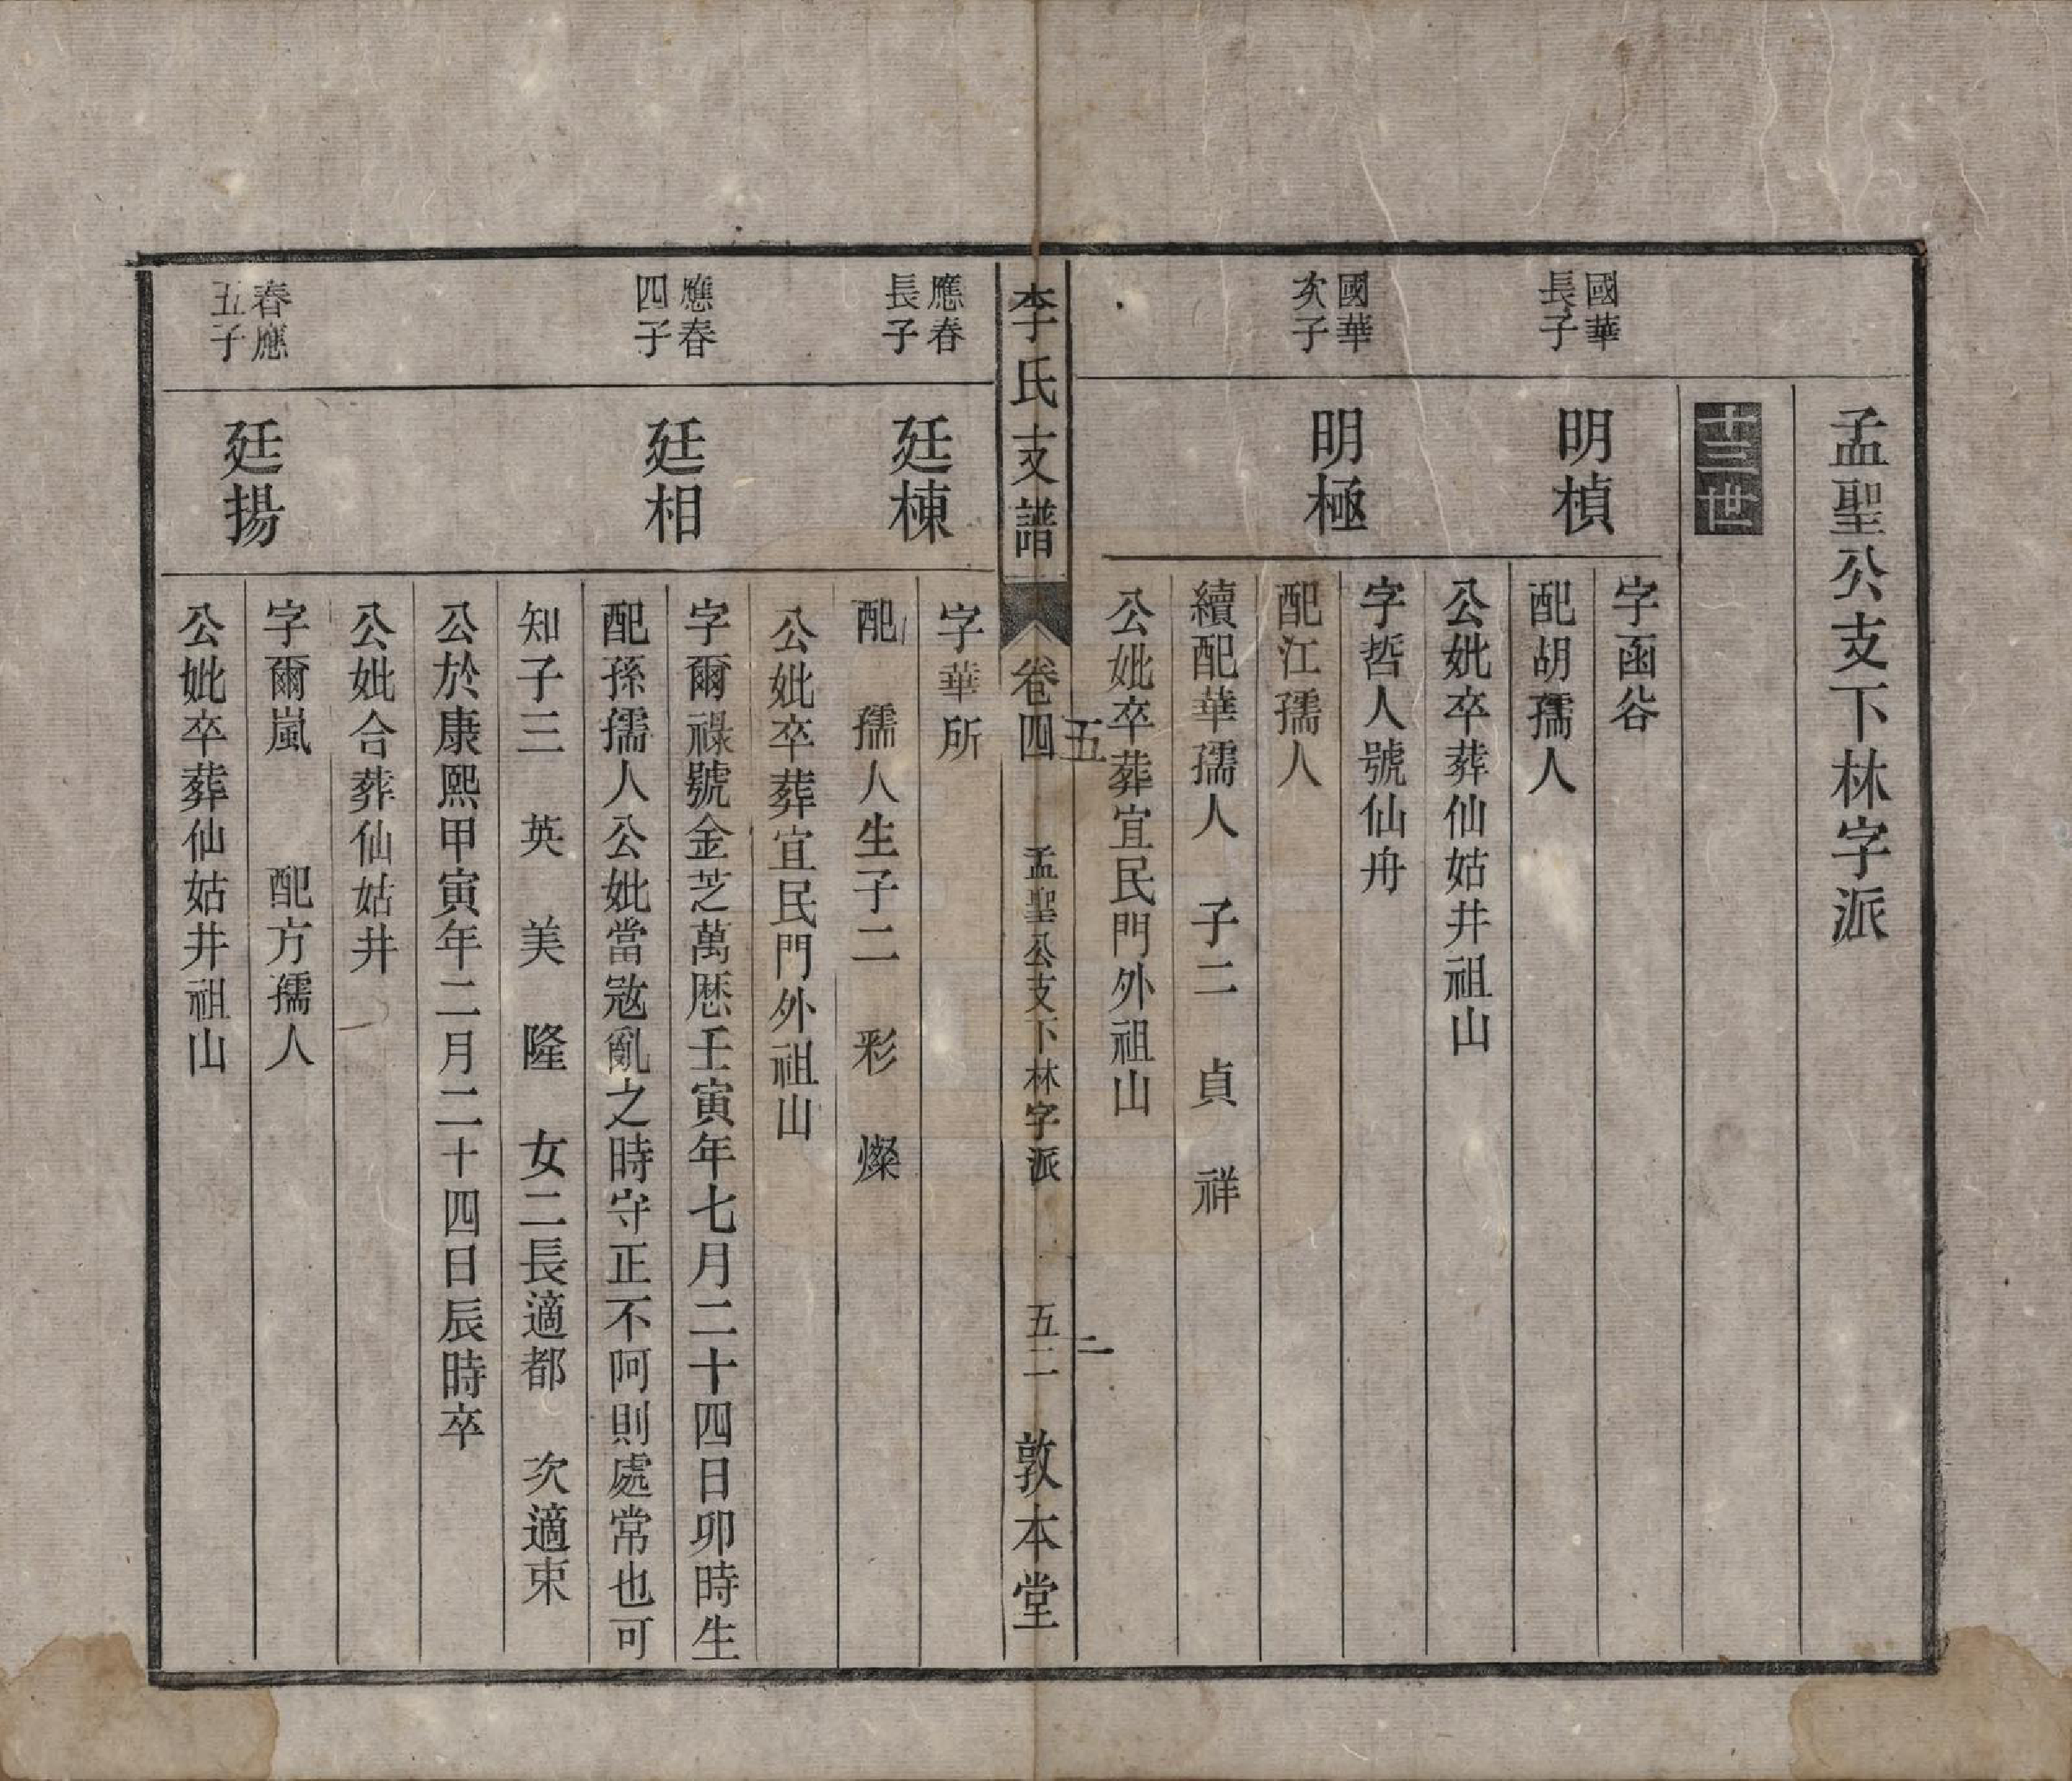 孟聖公支下林字派
十三世
國華
長子
明楨
字函谷
配胡孺人
公妣卒葬仙姑井祖山
國華
次子
明極
字哲人號仙舟
配江孺人
續配華孺人 子二 貞 祥
公妣卒葬宜民門外祖山
五
二
李氏支譜 卷四 孟聖公支下林字派 五二 敦本堂
應春
長子
廷棟
字華所
配 孺人生子二 彩 燦
公妣卒葬宜民門外祖山
應春
四子
廷相
字爾祿號金芝萬歷壬寅年七月二十四日卯時生
配孫孺人公妣當寇亂之時守正不阿則處常也可
知子三 英 美 隆 女二長適都 次適束
公於康熙甲寅年二月二十四日辰時卒
公妣合葬仙姑井
春應
五子
廷揚
字爾嵐 配方孺人
公妣卒葬仙姑井祖山